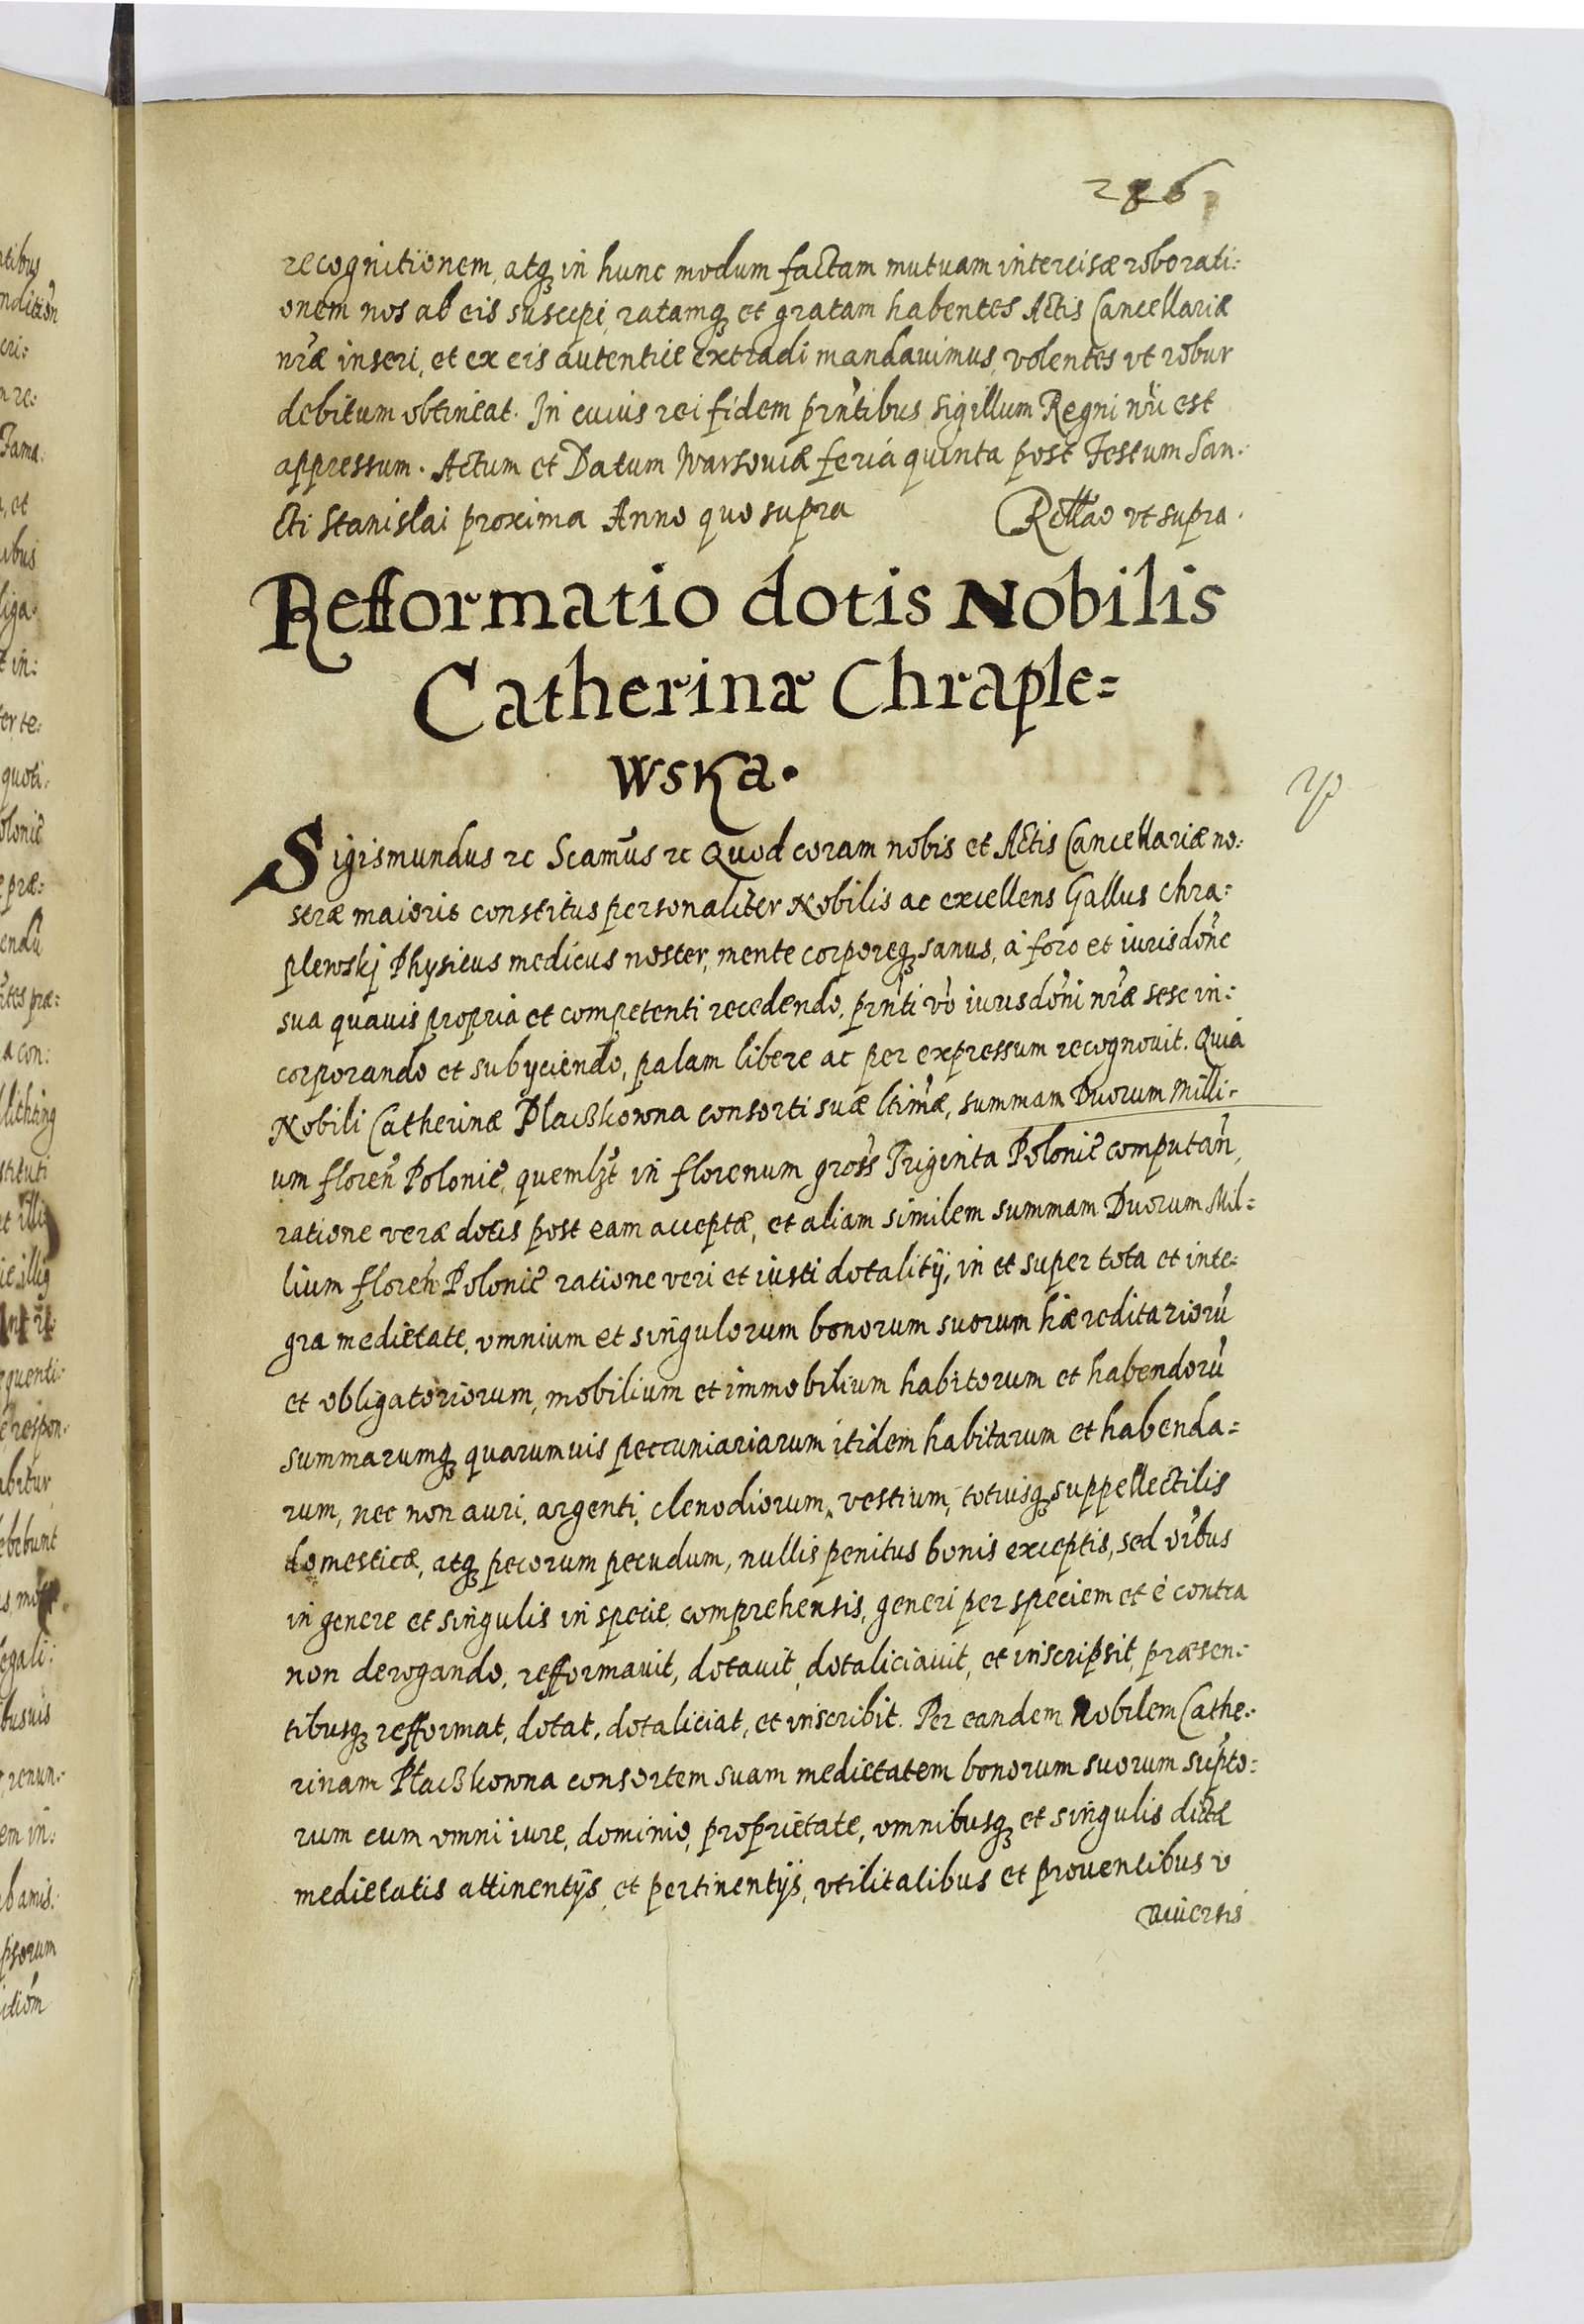 286
recognitionem, atq₃ in hunc modum factam mutuam intercisæ roborati:
onem nos ab eis suscepi, ratamq₃ et gratam habentes Actis Cancellariæ
nr̃æ inseri, et ex eis autentice extradi mandauimus, volentes vt robur
debitum obtineat. In cuius rei fidem prñtibus Sigillum Regni nri est
appressum. Actum et Datum Warsouiæ feriá quinta post Festum San:
cti Stanislai proxima Anno quo supra Rellao vt supra.
Refformatio dotis Nobilis
Catherinæ Chraple=
wska.
Sigismundus ꝛc Scamus ꝛc Quod coram nobis et Actis Cancellariæ no:
stræ maioris constitus personaliter Nobilis ac excellens Gallus Chra=
plewskj Physicus medicus noster, mente corporeq₃ sanus, à foro et iurisdõnc
sua quauis propria et competenti recedendo, prñti vo iurisdõni nr̃æ sese in:
corporando et subyciendo, palam libere ac per expressum recognouit. Quia
Nobili Catherinæ Placzkowna consorti suæ ltimæ, summam Duorum Milli:
um floreñ Polonic̃, quemlzt in florenum gross Triginta Polonic̃ computañ,
ratione veræ dotis post eam acceptæ, et aliam similem summam Duorum Mil=
lium floreñ Polonic̃ ratione veri et iusti dotalitÿ, in et super tota et inte:
gra medietate, omnium et singulorum bonorum suorum hæreditariorũ
et obligatoriorum, mobilium et immobilium habitorum et habendorũ
summarumq₃ quarumuis peccuniariarum itidem habitarum et habenda=
rum, nec non auri, argenti, clenodiorum, vestium, totiusq₃ suppellectilis
domesticæ, atq₃ pecorum pecudum, nullis penitus bonis exceptis, sed oĩbus
in genere et singulis in specie comprehensis, generi per speciem et è contra
non derogando, refformauit, dotauit, dotaliciauit, et inscripsit, præsen:
tibusq₃ refformat, dotat, dotaliciat, et inscribit. Per eandem Nobilem Cathe:
rinam Placzkowna consortem suam medietatem bonorum suorum supto:
rum cum omni iure, dominio, proprietate, omnibusq₃ et singulis dictæ
medietatis attinentÿs, et pertinentÿs, vtilitatibus et prouentibus v
Diuersis